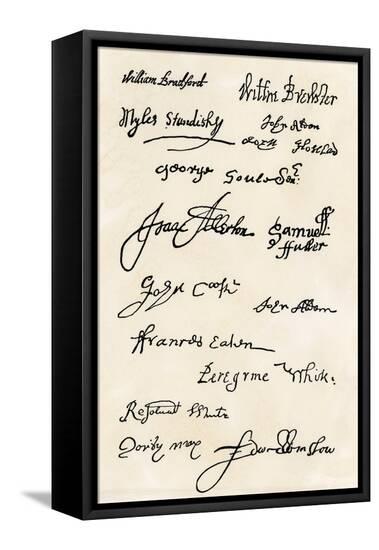 William Bradford
Willm Brewster
Myles Standish
John Alden
George Soule Senr:
Isaac Allerton
Samuell
ffuller
John Cooke
John Alden
ffrancis Eaton
Peregrine White:
Resolved White
Edw: Winslow